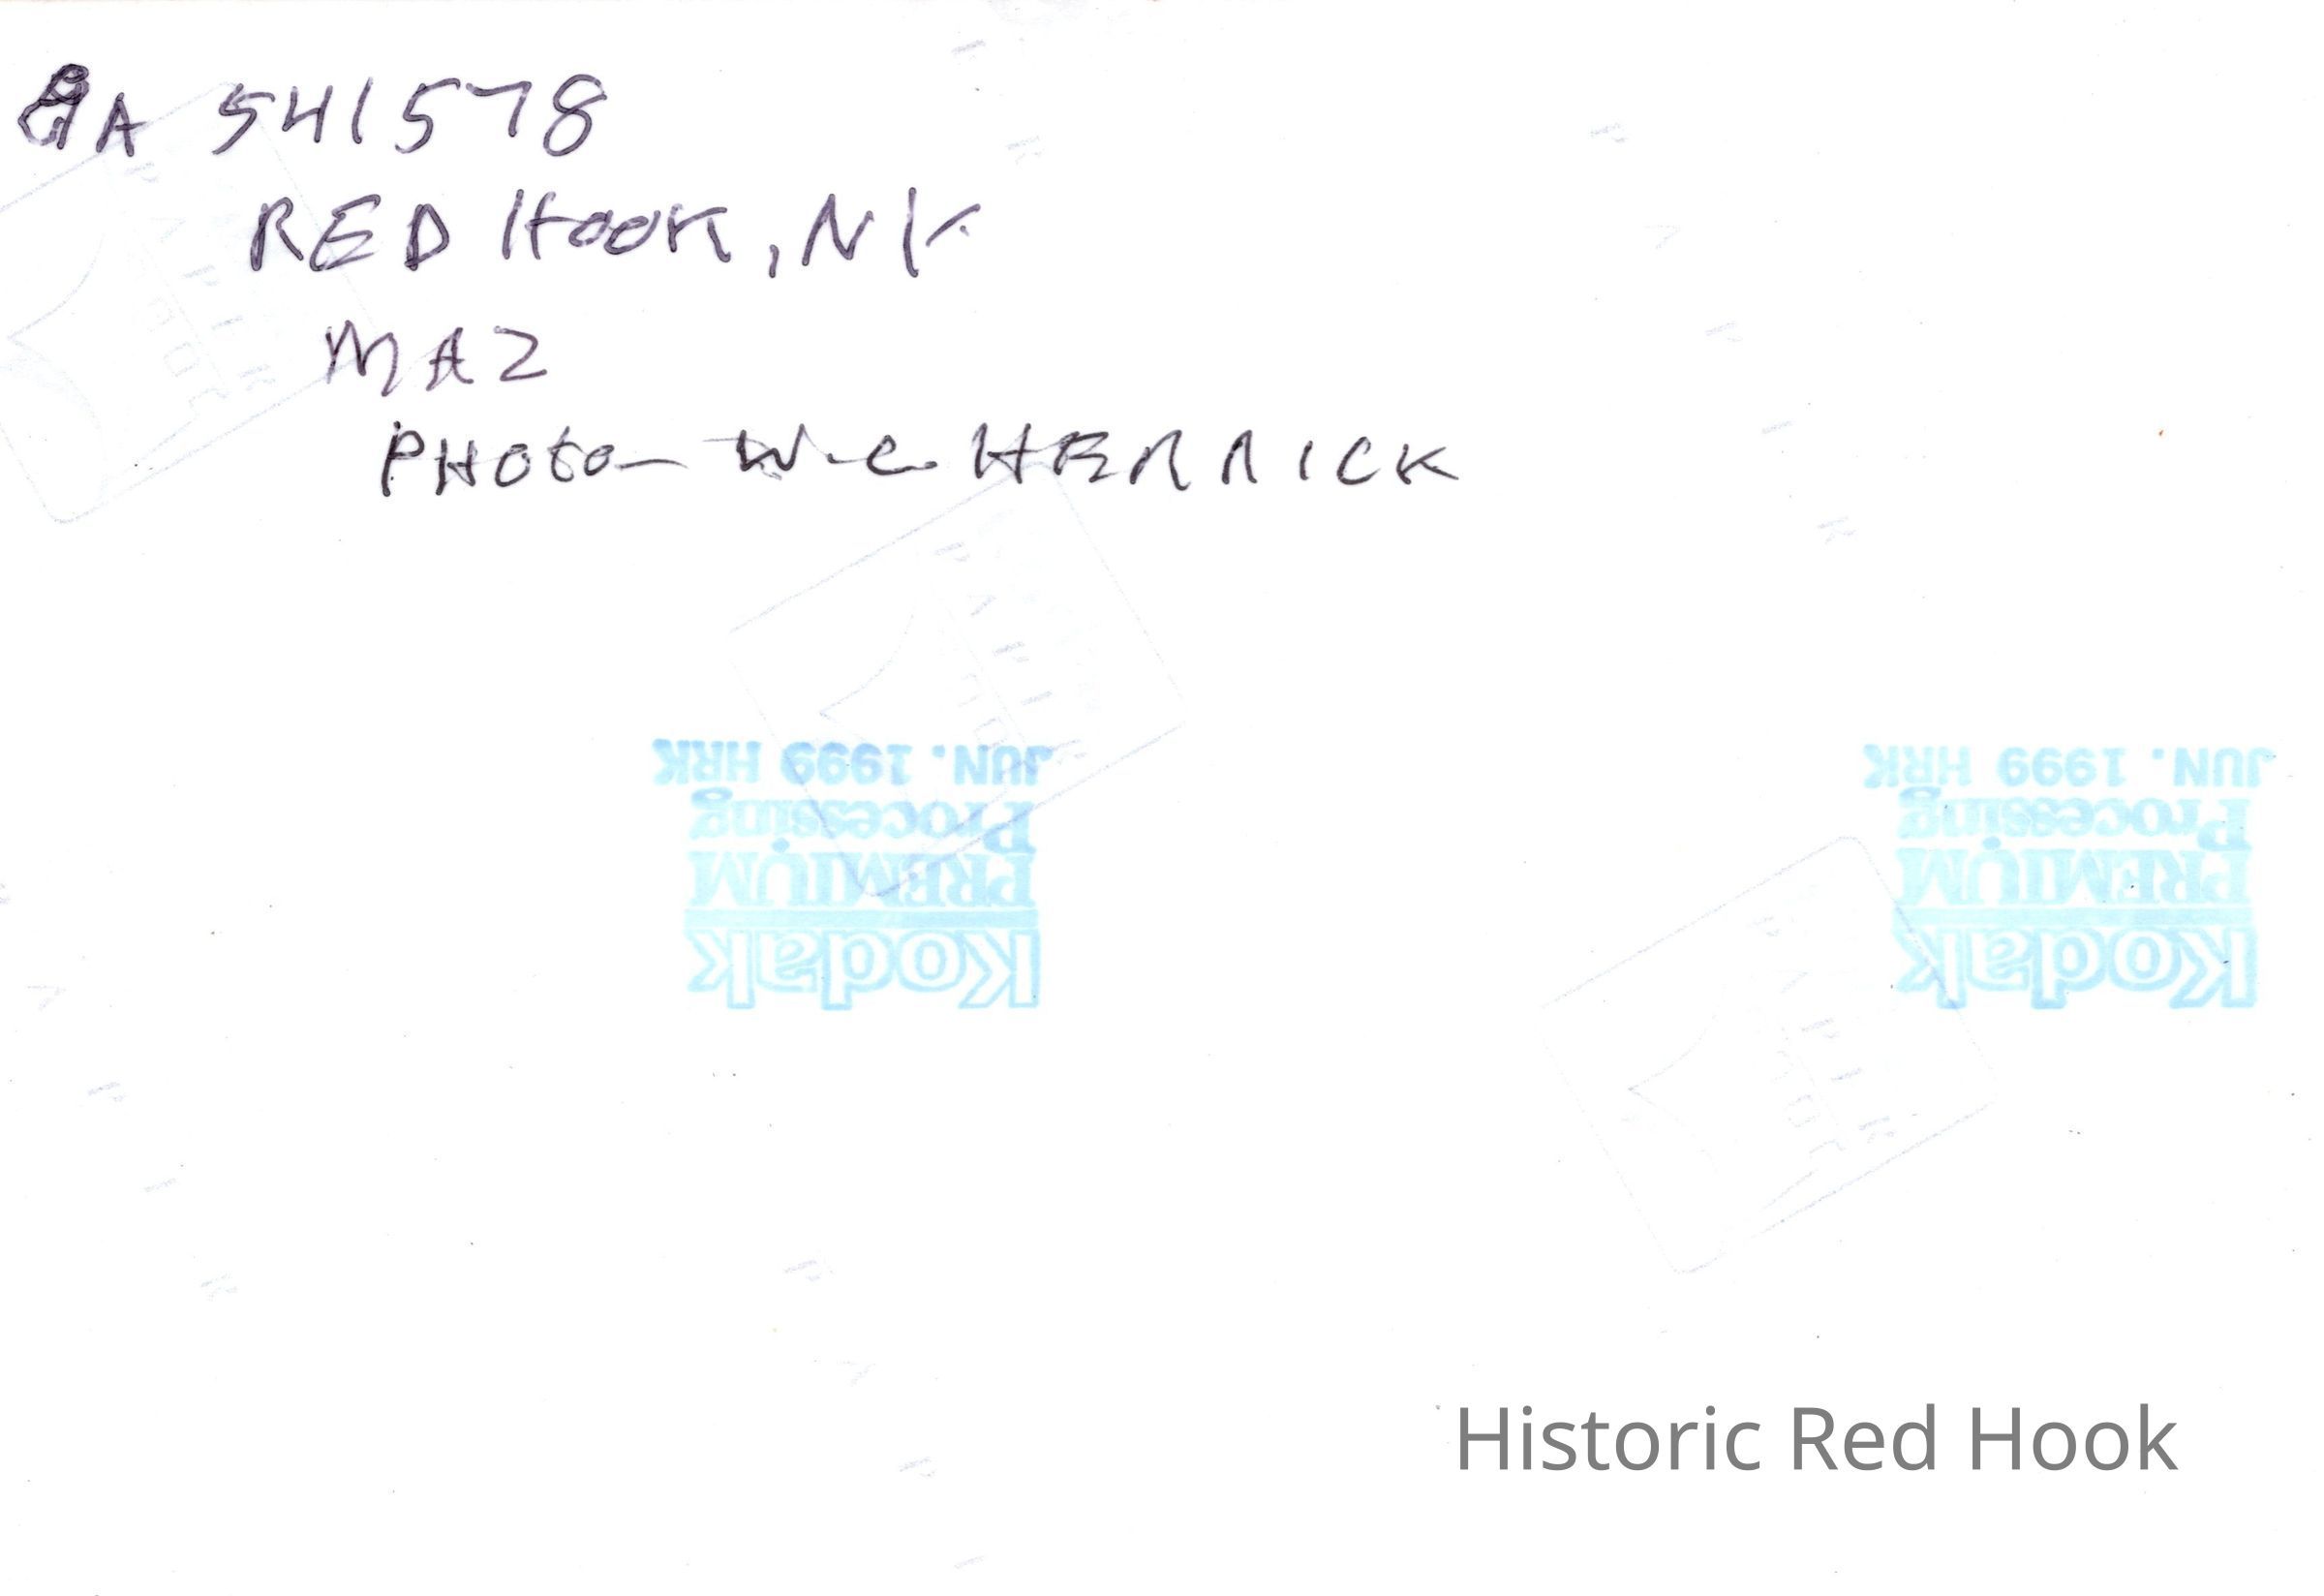 541578
RED HOOK, NY
MAZ
PHOTO - W.C. HERRICK
JUN. 1999 HRK
Processing
PREMIUM
Kodak
JUN. 1999 HRK
Processing
PREMIUM
Kodak
Historic Red Hook